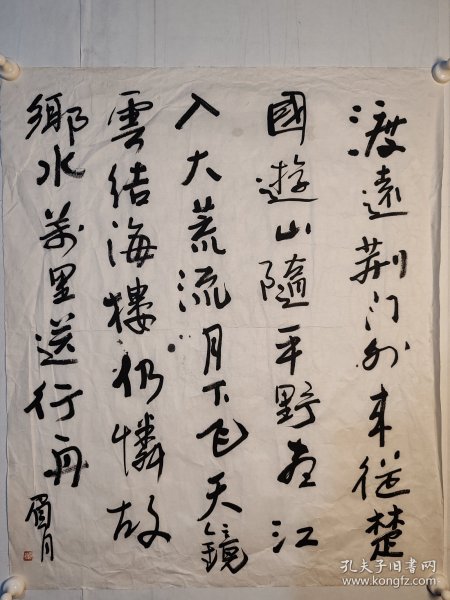 渡遠荆门外来從楚
國遊山隨平野盡江
入大荒流月下飞天鏡
雲结海樓仍憐故
鄉水萬里送行舟
眉月
孔夫子旧书网
www.kongfz.com